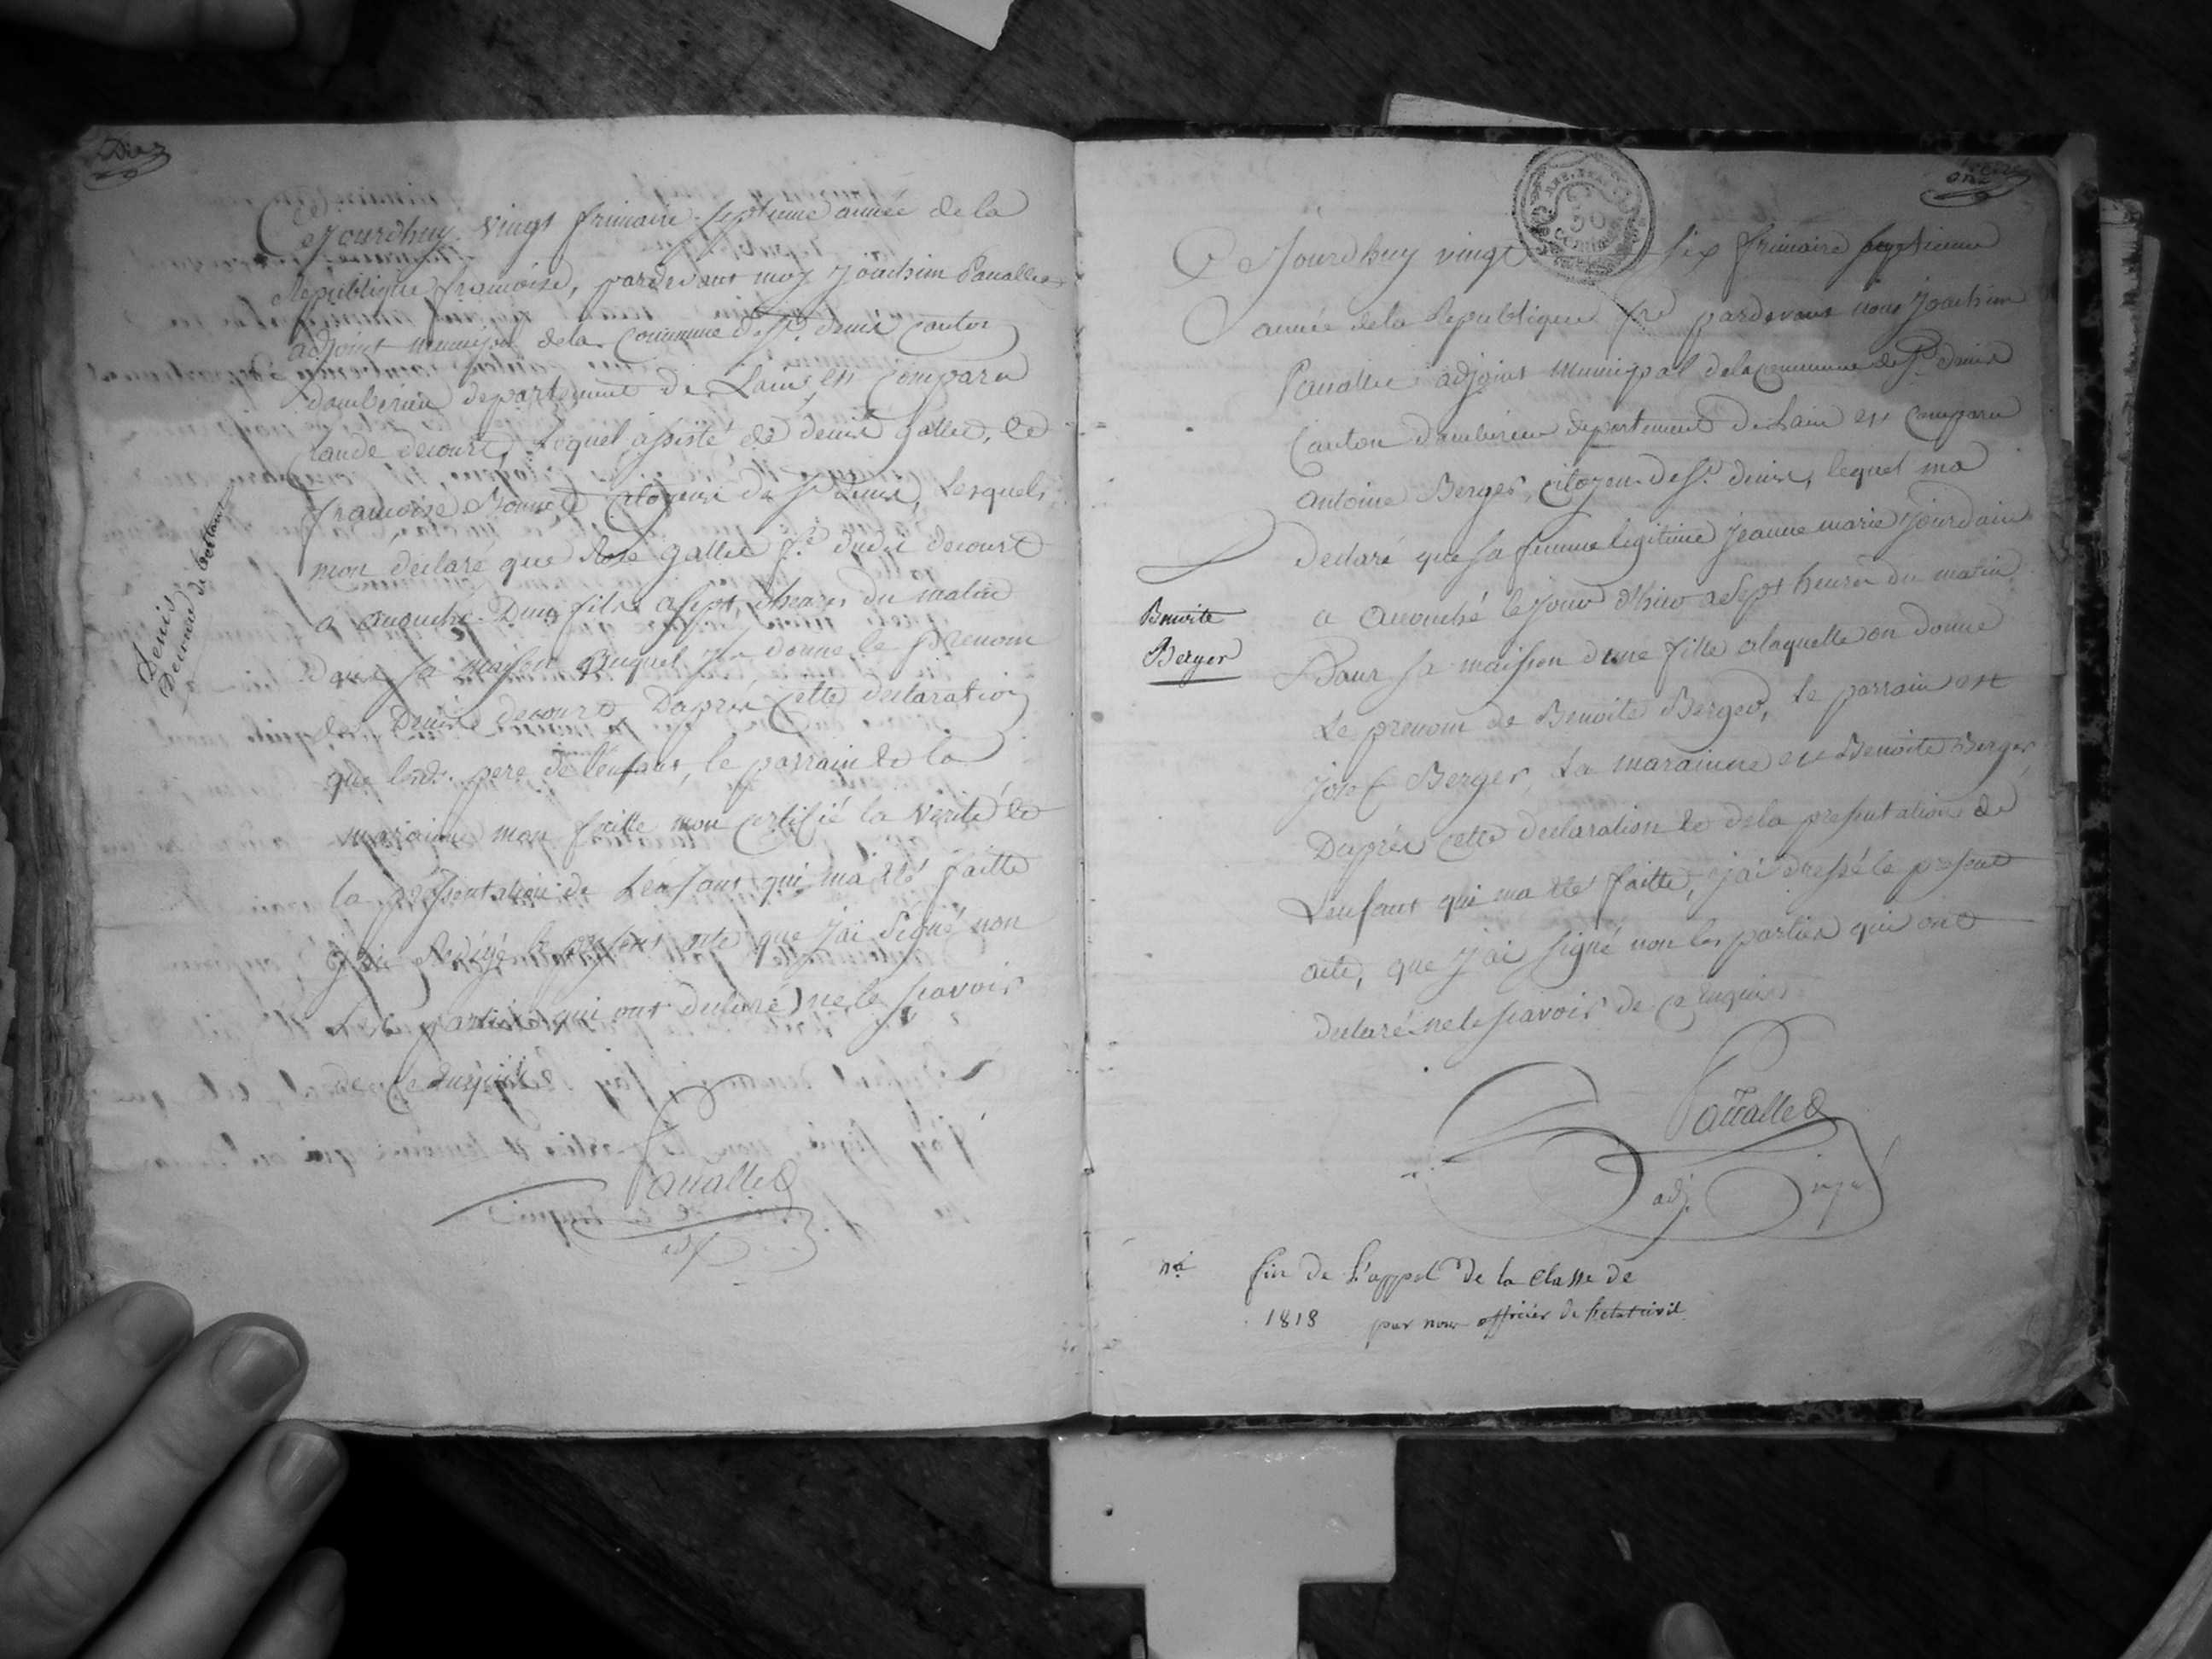 Dix
Cejourdhuy vingt frimaire septieme année de la
Republique francoise, pardevant moy Joachim Pauallet
adjoint municipal dela Commune de St. denis Canton
dambérieu departement de Lain, est Comparu
Claude decourt, Lequel assisté de denis gallet, et
francoise Bonnet Citoyens de St denis, Lesquels
mon déclaré que Rose gallet fe. dudit decourt
a acouché Dun fils a sept heures du matin
dans sa maison auquel on donne le Prenom
de Denis decourt Daprès Cette déclaration
que led. pere de lenfant, le parrain et la
maraine mon faitte mon Certifié la verité et
la présentation de Lenfant qui ma été faitte
J'ai Redigé le present acte que j'ai Signé non
Les parties qui ont declaré ne le scavoir
de ce Enquis
Pauallet
adj.
Denis
Decourt
onze
50
Centimes
Ce Jourdhuy vingt six frimaire septieme
année dela Republique fre pardevant nous Joachim
Pauallet adjoint Municipal delaCommune de St. denis
Canton dambérieu departement de Lain est Comparu
antoine Berger, Citoyen de St. denis, lequel ma
declaré que sa femme legitime Jeanne marie Jourdain
a acouché le Jour d'hier a Sept heures du matin
Dans sa maison dune fille alaquelle on donne
Le prenom de Benoite Berger, Le parrain est
Josef Berger, La maraine est Benoite Berger
Daprès Cette declaration et dela presentation de
Lenfant qui ma été faitte, j'ai dressé le present
acte, que J'ai Signé non les parties qui ont
declaré ne le scavoir de ce Enquis
Benoite
Berger
Pauallet
adj.
na fin de L'appel de la Classe de
1818 par nous officier de l'etat civil